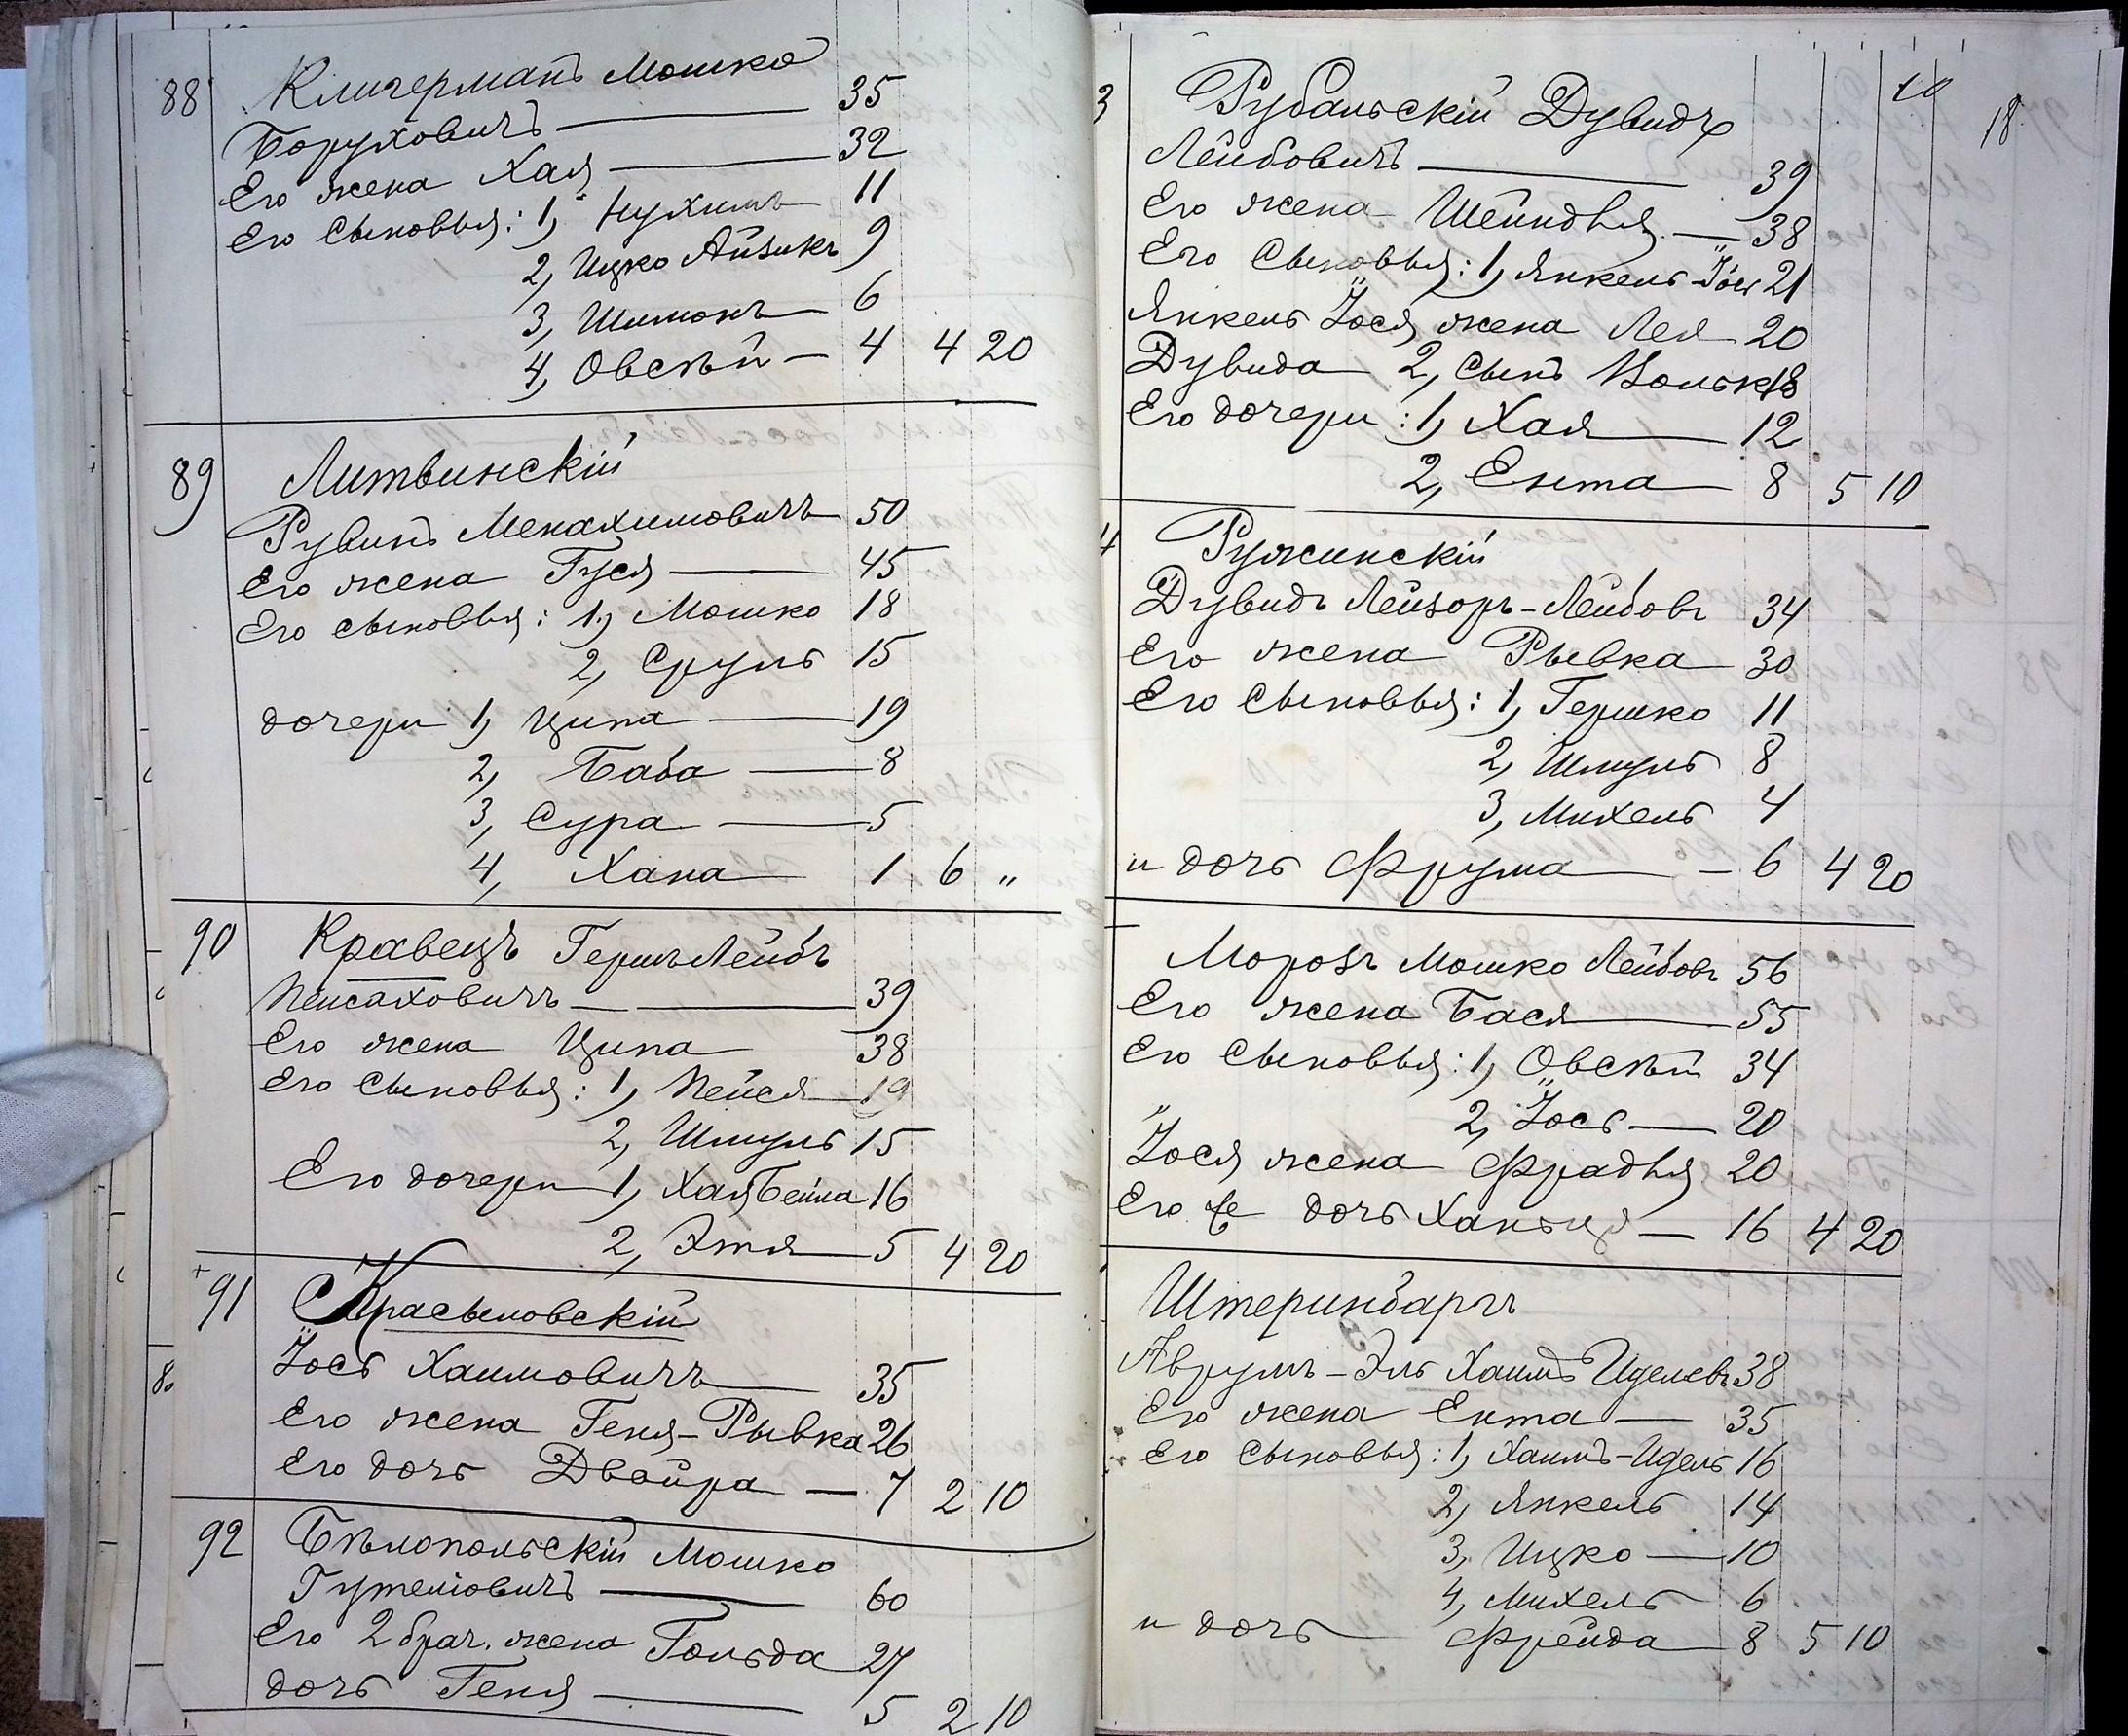 88 Кличерманъ Мошко
Боруховичъ — 35
Его жена Хая — 32
Его сыновья: 1, Нухимъ 11
2, Ицко Айзикъ 9
3, Шимонъ 6
4, Овсѣй — 4 4 20
89 Литвинскій
Рувинъ Менахимовичъ 50
Его жена Гуся — 45
Его сыновья: 1, Мошко 18
2, Сруль 15
дочери 1, Ципа — 19
2, Баба — 8
3, Сура — 5
4, Хана 1 6 „
90 Кравецъ ГершъЛейбъ
Пейсаховичъ — 39
Его жена Ципа 38
Его сыновья: 1, Пейся 19
2, Шмуль 15
Его дочери 1, ХаяБейла 16
2, Этя — 5 4 20
91 Красыловскій
Іось Хаимовичъ 35
Его жена Геня-Рывка 26
Его дочь Двойра — 7 2 10
92 Бѣлопольскій Мошко
60
Его 2 брач. жена Гольда 27
дочь Геня — 5 2 10
10
18
3 Рубанскій Дувидъ
Лейбовичъ — 39
Его жена Шейндья — 38
Его сыновья: 1, Янкель-Іось 21
Янкель Іося жена Лея 20
Дувида 2, сынъ Вольк 18
Его дочери: 1, Хая — 12
2, Ента — 8 5 10
4 Ружинскій
Дувидъ Лейзоръ-Лейбовъ 34
Его жена Рывка 30
Его сыновья: 1, Гершко 11
2, Шмуль 8
3, Михель 4
и дочь Фрума — 6 4 20
Морозъ Мошко Лейбовъ 56
Его жена Бася — 55
Его сыновья: 1, Овсѣй 34
2, Іось — 20
Іося жена Фрадья 20
Его дочь Ханьця — 16 4 20
Штеринбаргъ
Аврумъ-Эль Хаимъ Иделевъ 38
Его жена Ента — 35
Его сыновья: 1, Хаимъ-Идель 16
2, Янкель 14
3, Ицко — 10
4, Михель 6
и дочь Фрейда — 8 5 10